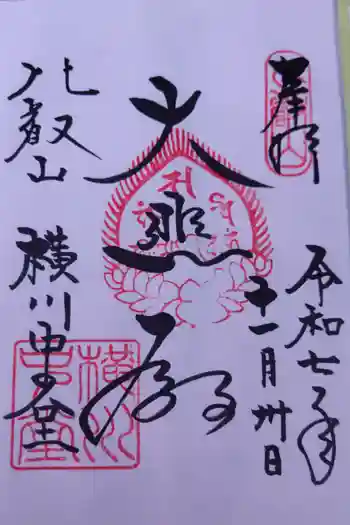 奉拝
令和七年
十一月卅日
大悲殿
比叡山
横川中堂